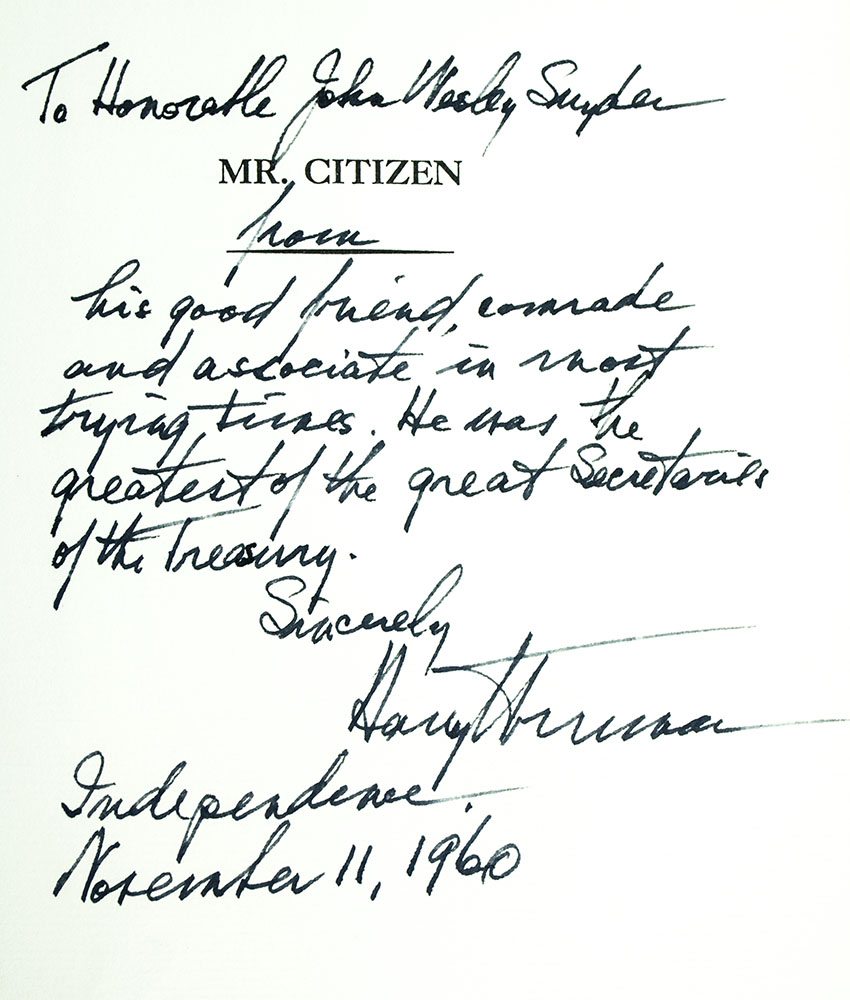 To Honorable John Wesley Snyder
MR. CITIZEN
from
his good friend, comrade
and associate in most
trying times. He was the
greatest of the great Secretaries
of the Treasury.
Sincerely
Harry Truman
Independence.
November 11, 1960